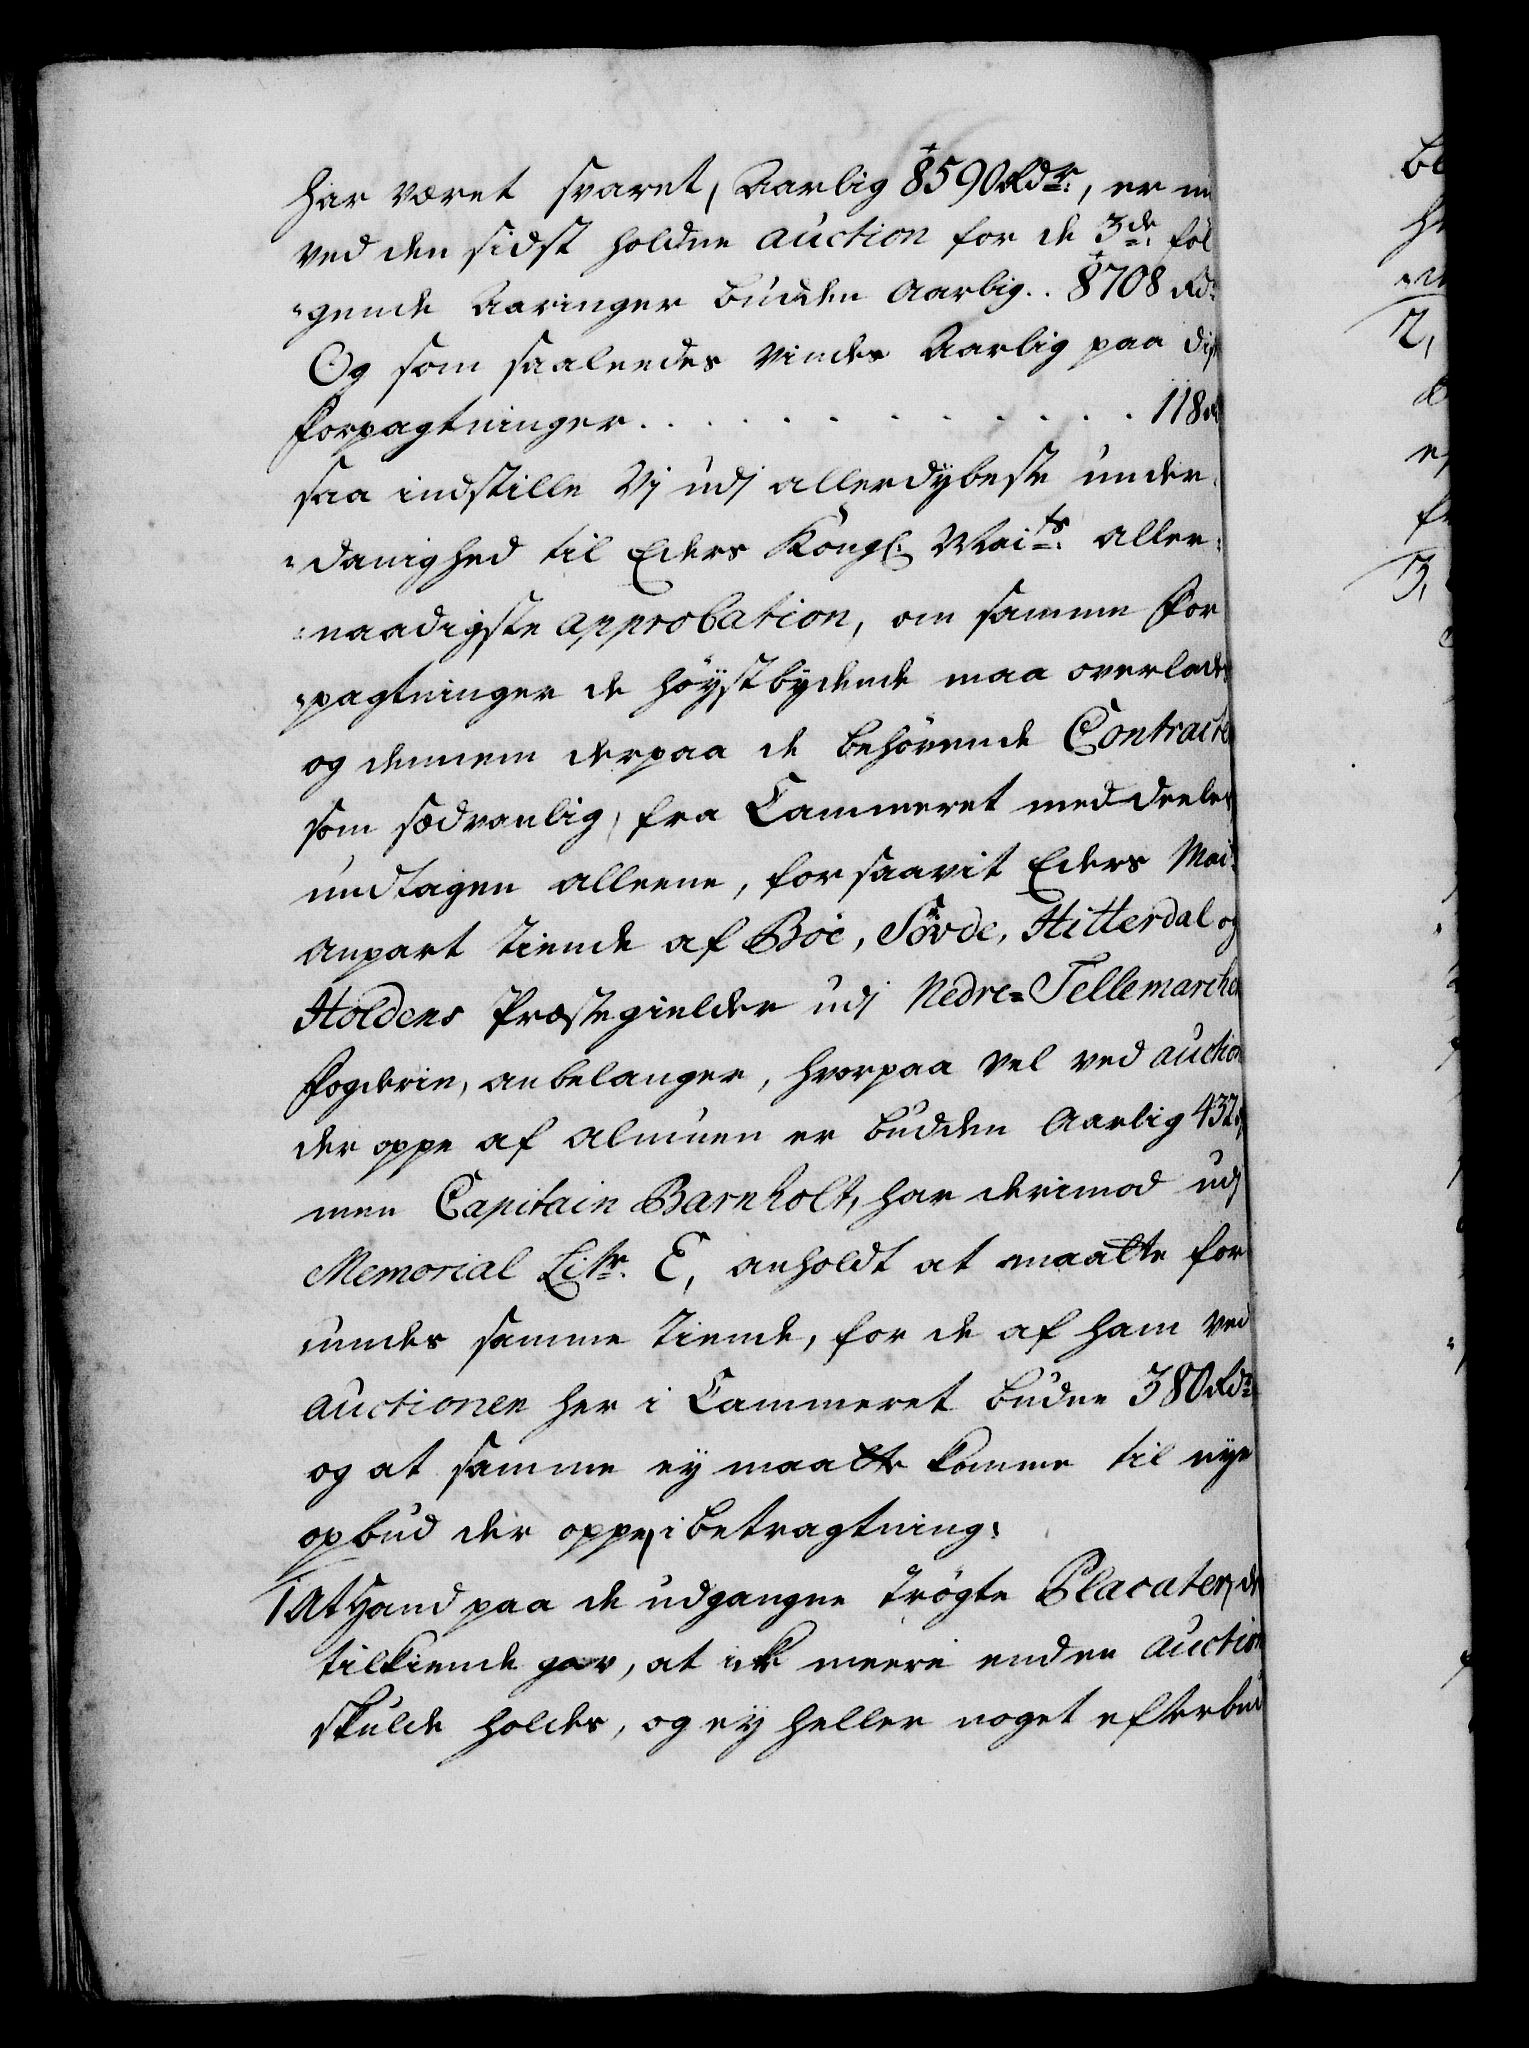 har været svaret, Aarlig 8590 Rdr:, er nu
ved den sidst holdne auction for de 3de føl
gende Aaringer budden Aarlig .. 8708 Rdr
Og som saaleedes vindes Aarlig paa diſ
forpagtninger. . . . . . . . . . 118 r
saa indstille Vj udj allerdybeste under-
danighed til Eders Kongl: Maits: aller-
naadigste approbation, om samme for
pagtninger de høystbydende maa overlades
og dennem derpaa de behørende Contracter
som sædvanlig, fra Cammeret meddeeles
undtagen alleene, forsaavit Eders Mai:
anpart tiende af Böe, Sövde, Hitterdal og
Holdens Præstegielder udj Nedre-Tellemarchen
fogderie, anbelanger, hvorpaa vel ved auction
der oppe af almuen er budden Aarlig 432
men Capitain Barnholt, har derimod udj
Memorial Litr: E, anholdt at maatte for
undes samme tiende, for de af ham ved
auctionen her i Cammeret budne 380 Rdr
og at samme ey maatte komme til nye
opbud der oppe, i betragtning:
1, At hand paa de udgangne trögte Placater, de
tilkiende gav, at ik meere enden auction
skulde holdes, og ey heller noget efterbud